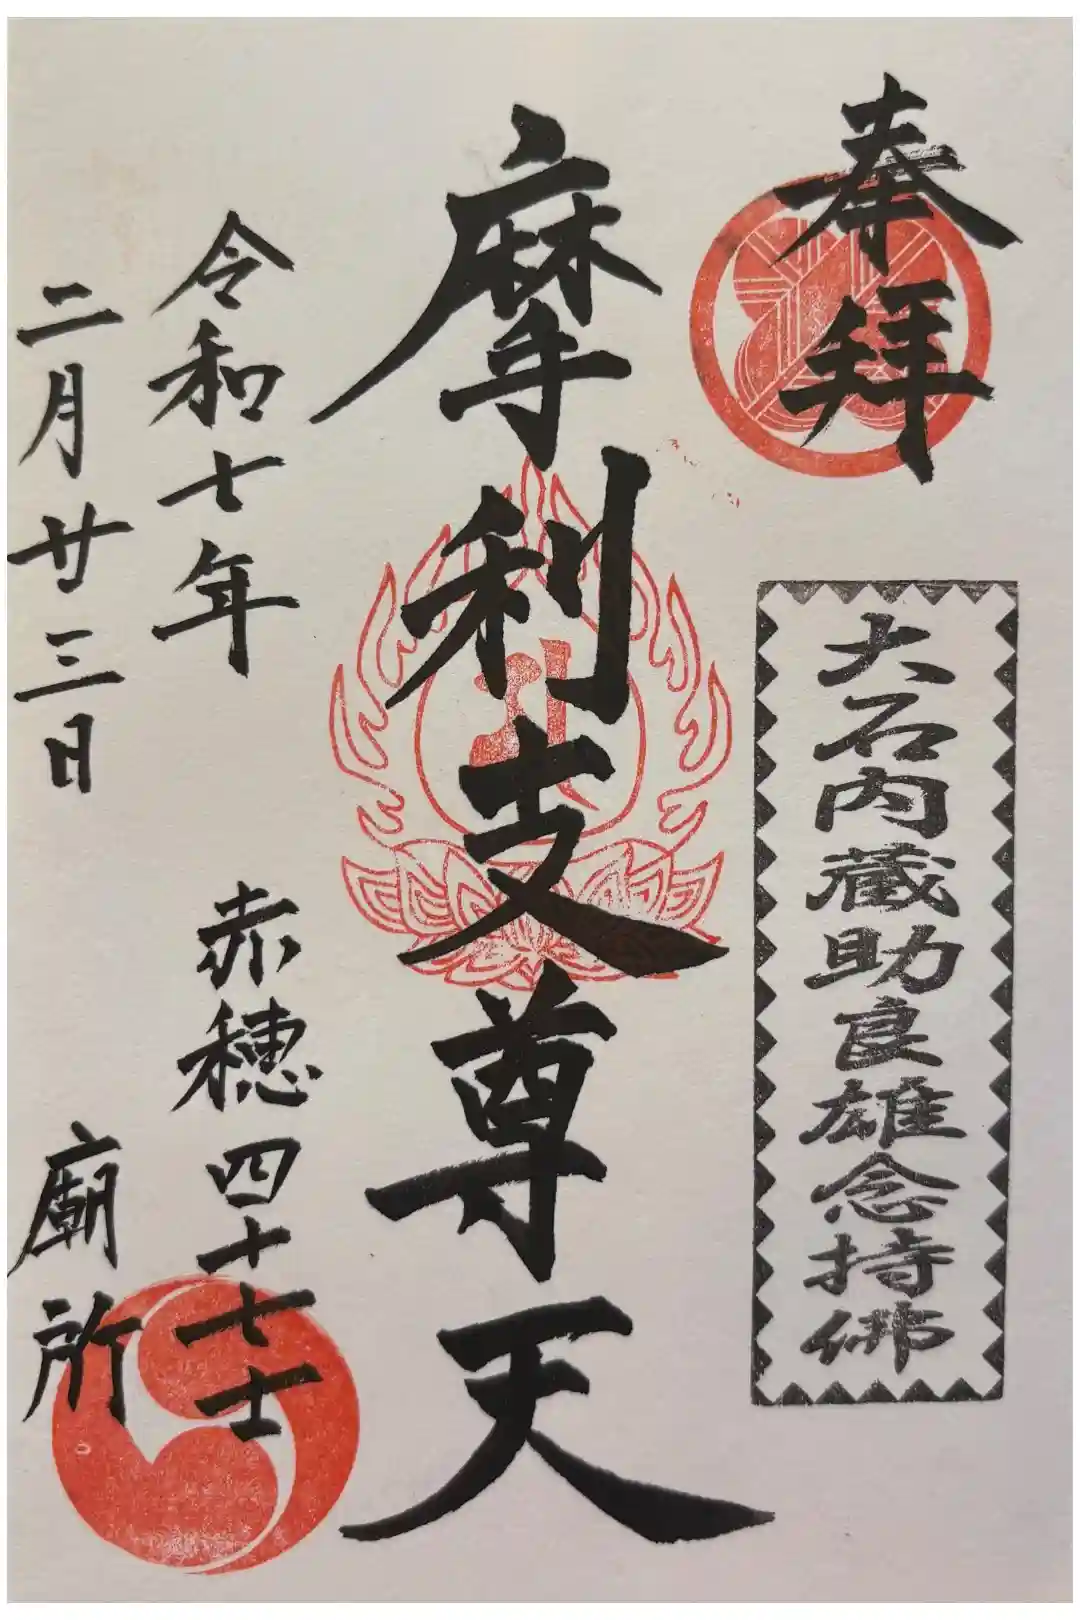 奉拝
大石内蔵助良雄念持佛
摩利支尊天
令和七年
二月廿三日
赤穂四十七士
廟所